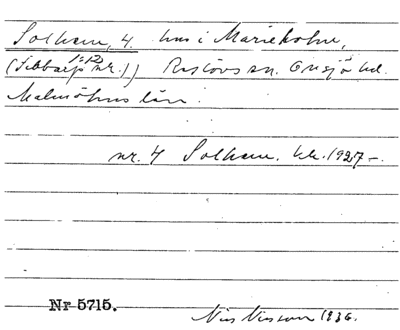 Solhem, 4. hus i Marieholm,
(Sibbarp 1:12 nr.1)) Reslövs sn. Onsjö hd.
Malmöhus län.
nr. 4 Solhem. kk. 1927-.
Nr 5715.
Nils Nilsson 1936.